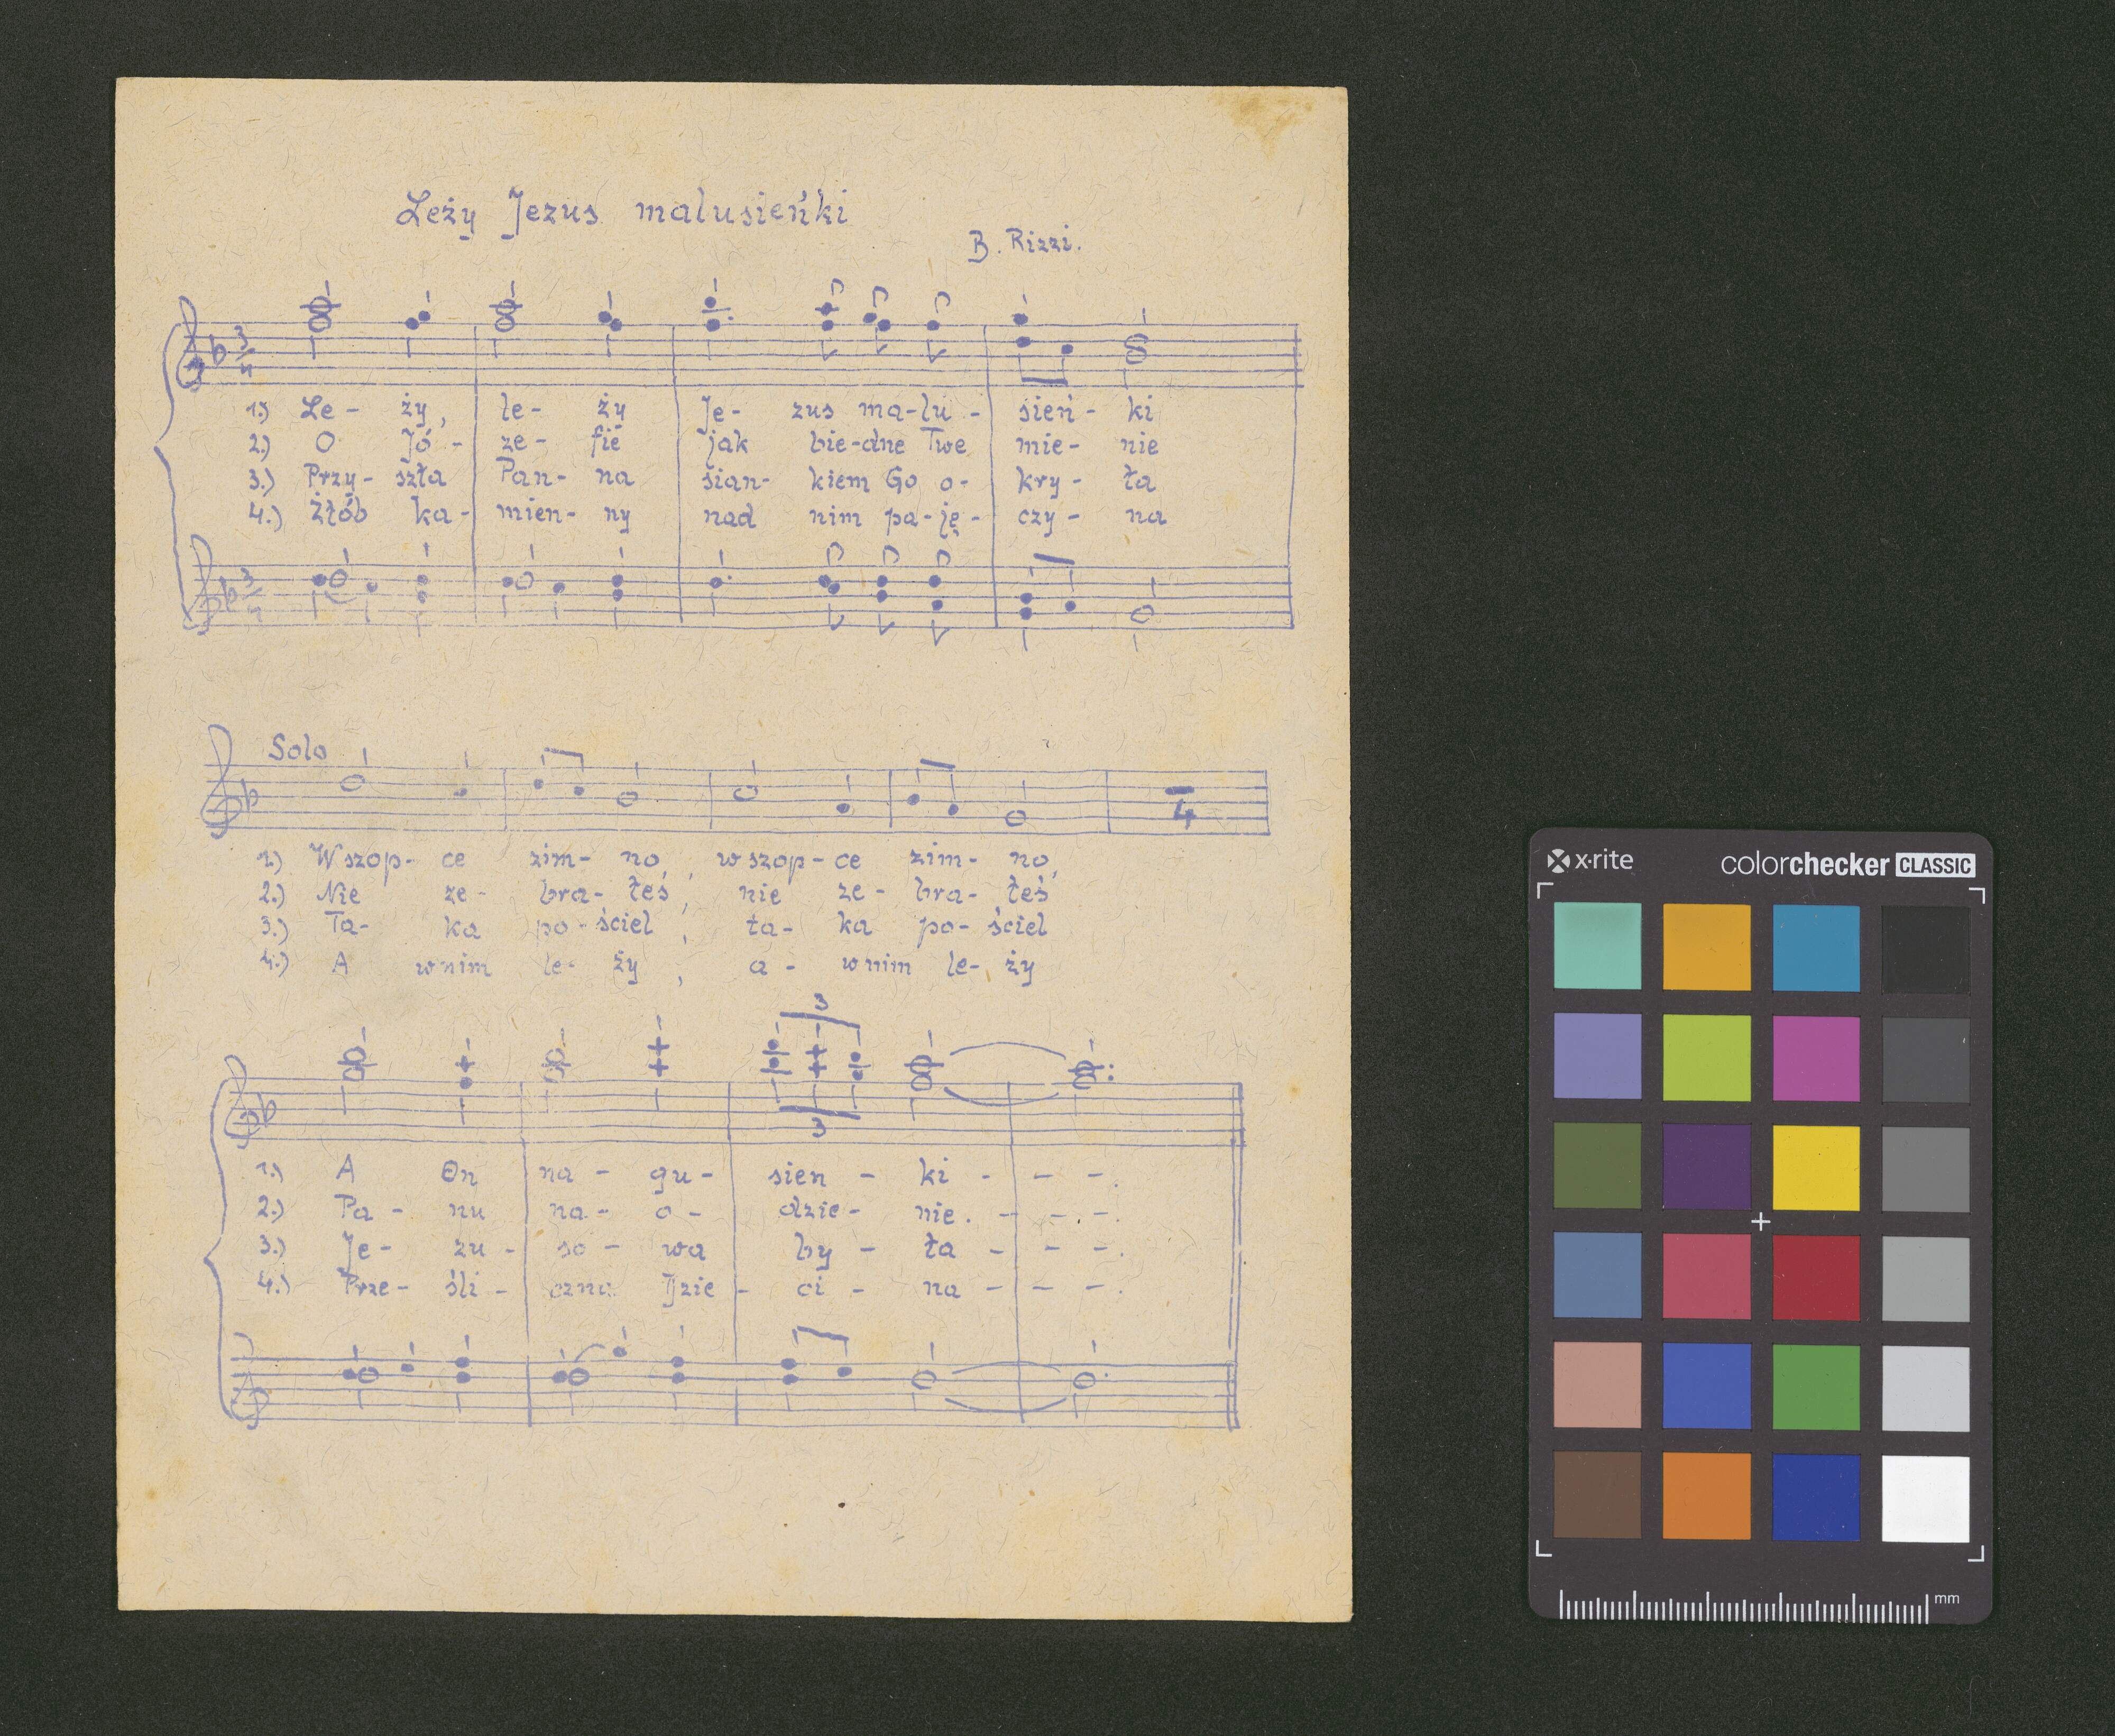 Leży Jezus malusieńki
B. Rizzi.
3/4
1.) Le- ży, le- ży Je- zus ma-lu- sień- ki
2.) O Jó- ze- fie jak bie-dne Twe mie- nie
3.) Przy- szła Pan- na sian- kiem Go o- kry- ła
4.) Żłób ka- mien- ny nad nim pa-ję- czy- na
3/4
Solo
4
1.) W szop- ce zim- no, w szop- ce zim- no,
2.) Nie ze- bra- łeś, nie ze- bra- łeś
3.) Ta- ka po- ściel, ta- ka po- ściel
4.) A w nim le- ży, a- w nim le- ży
3
3
1.) A On na- gu- sien- ki - - -.
2.) Pa- nu na- o- dzie- nie. - - -.
3.) Je- zu- so- wa by- ła - - -.
4.) Prze- śli- czna Dzie- ci- na - - -.
x-rite colorchecker CLASSIC
mm